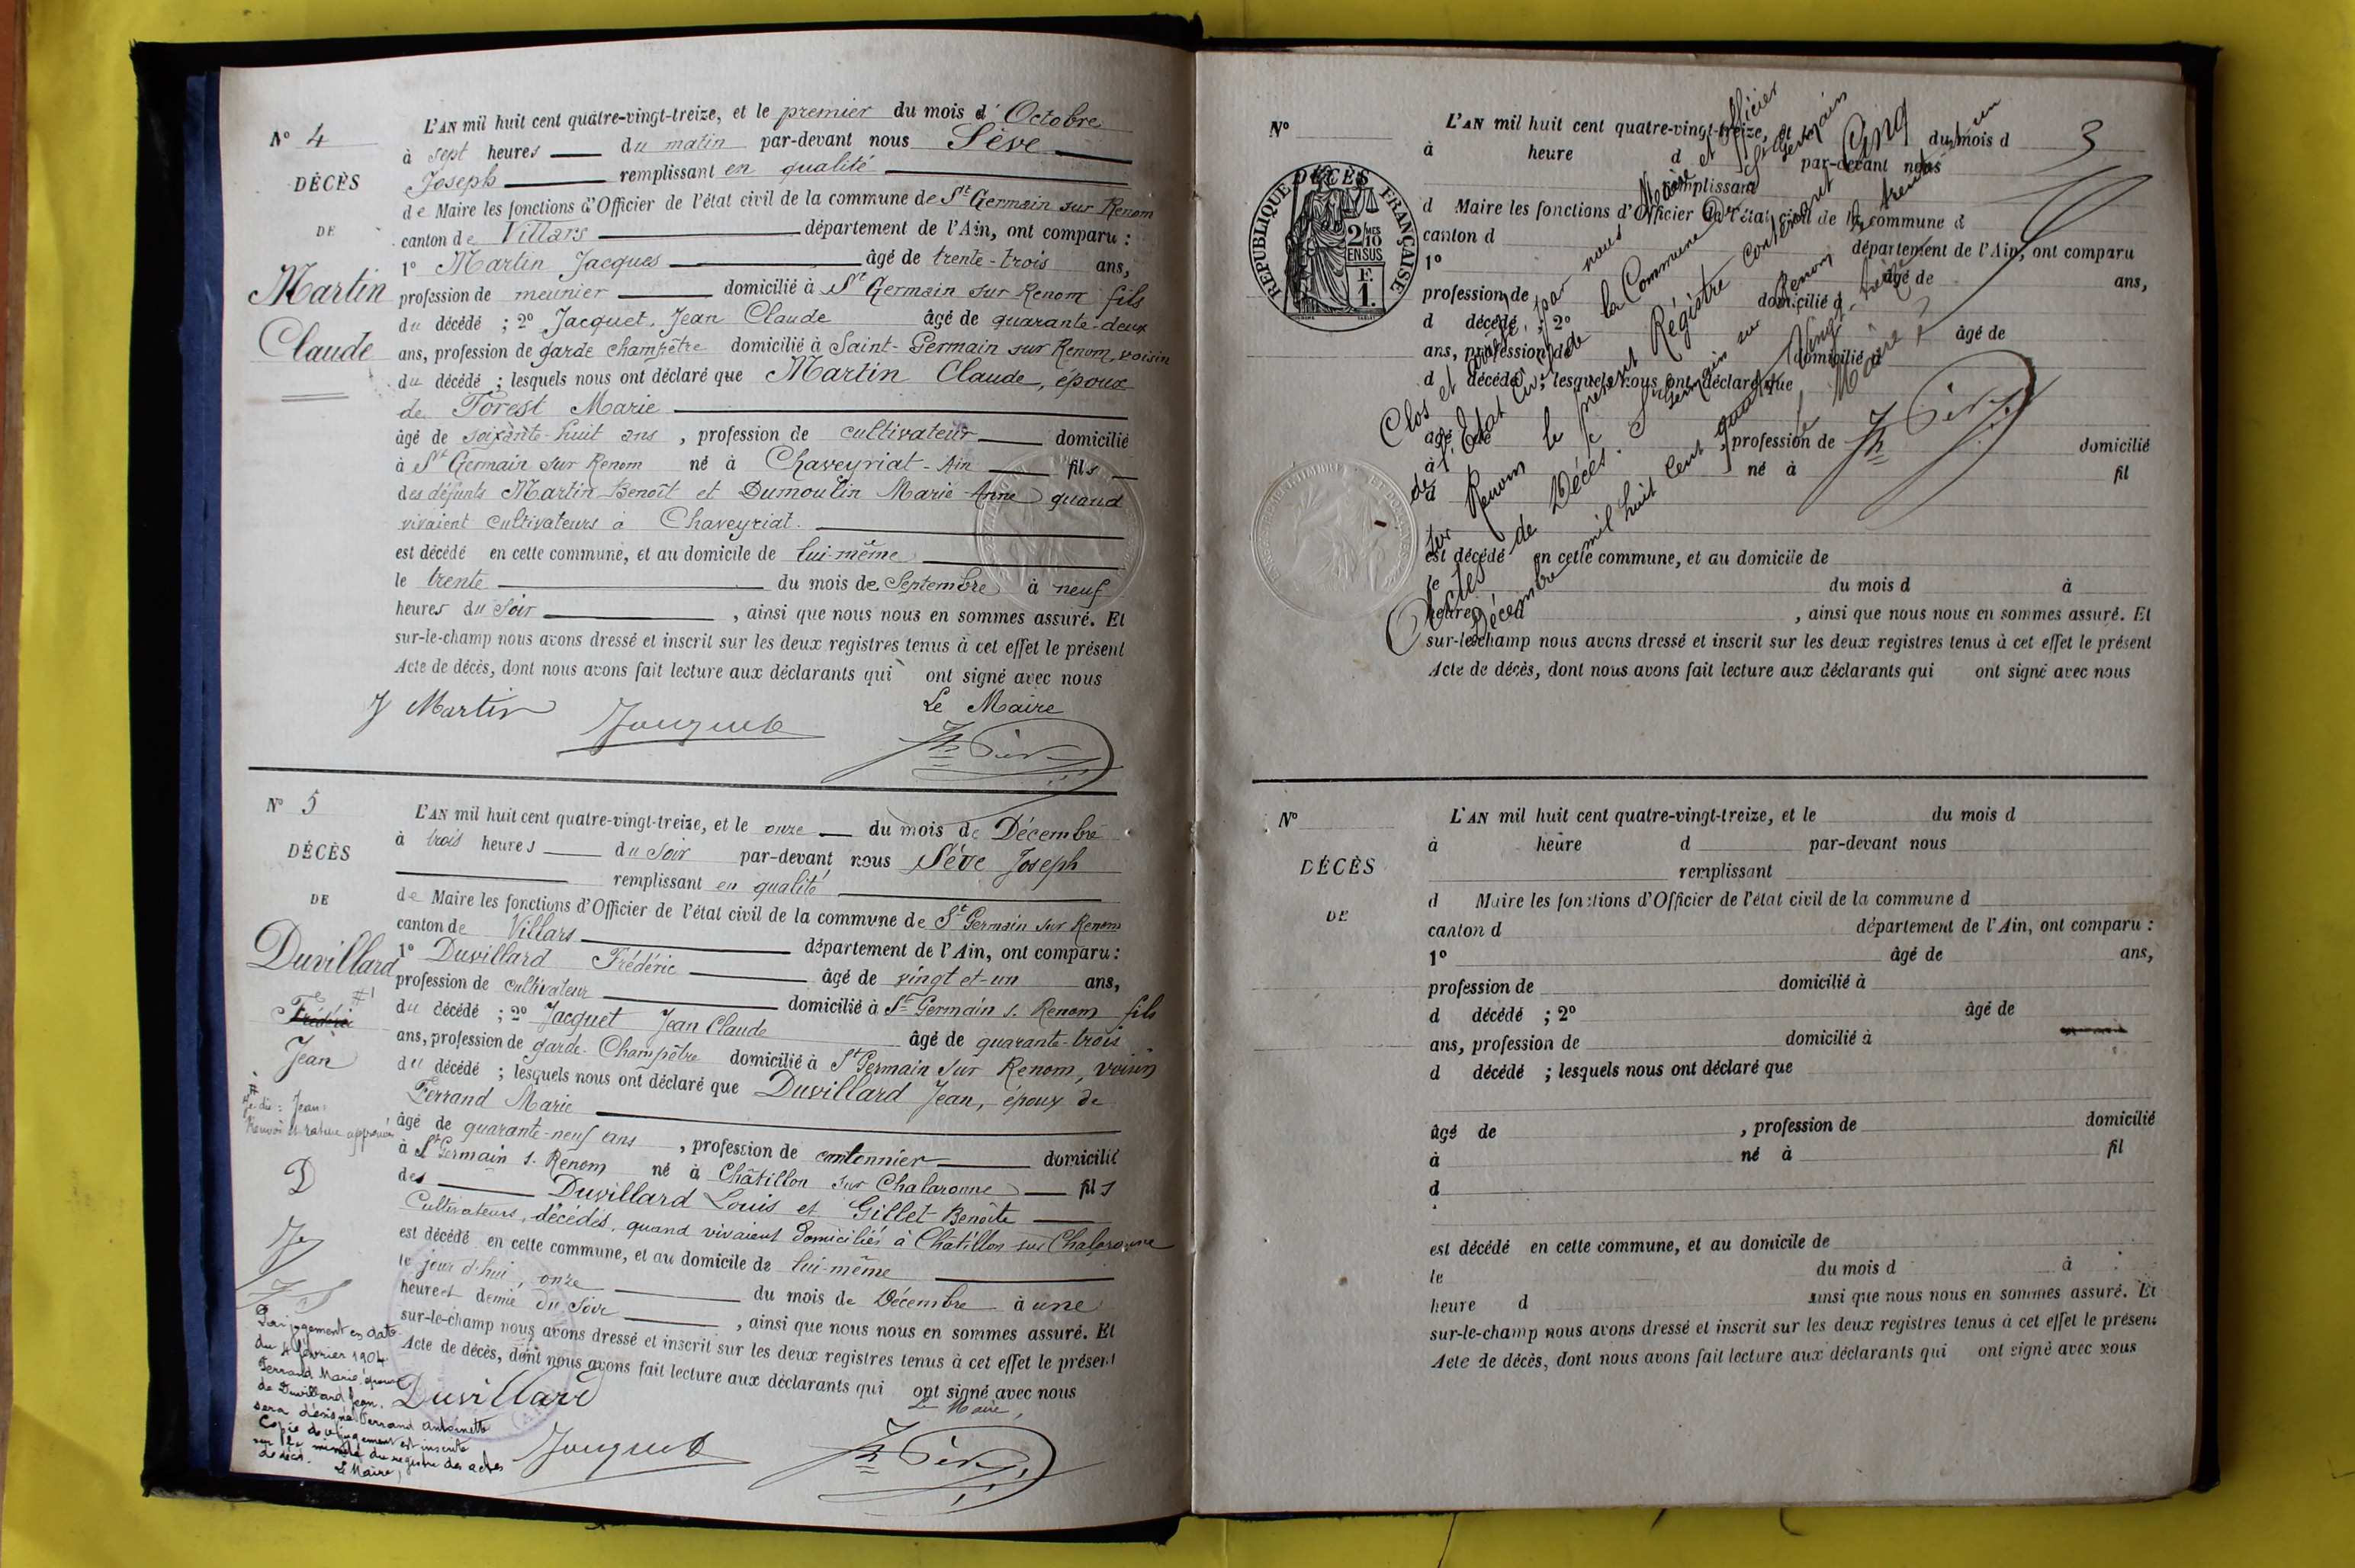 N° 4
DÉCÈS
DE
Martin
Claude
L'AN mil huit cent quatre-vingt-treize, et le premier du mois d'Octobre
à sept heures du matin par-devant nous Sève
Joseph remplissant en qualité
de Maire les fonctions d'Officier de l'état civil de la commune de St Germain sur Renom
canton de Villars département de l'Ain, ont comparu :
1° Martin Jacques âgé de trente-trois ans,
profession de meunier domicilié à St Germain sur Renom fils
du décédé ; 2° Jacquet, Jean Claude âgé de quarante-deux
ans, profession de garde champêtre domicilié à Saint-Germain sur Renom, voisin
du décédé ; lesquels nous ont déclaré que Martin Claude, époux
de Forest Marie
âgé de soixante-huit ans , profession de cultivateur domicilié
à St Germain sur Renom né à Chaveyriat-Ain fils
des défunts Martin Benoît et Dumoulin Marie Anne quand
vivaient cultivateurs à Chaveyriat.
est décédé en cette commune, et au domicile de lui-même
le trente du mois de Septembre à neuf
heures du soir , ainsi que nous nous en sommes assuré. Et
sur-le-champ nous avons dressé et inscrit sur les deux registres tenus à cet effet le présent
Acte de décès, dont nous avons fait lecture aux déclarants qui ont signé avec nous
Le Maire
J Martin Jacquet Jh Sève
N° 5
DÉCÈS
DE
Duvillard
Frédéric #1
Jean
# Je dis : Jean
Renvoi et rature approuvés
D
L'AN mil huit cent quatre-vingt-treize, et le onze du mois de Décembre
à trois heures du soir par-devant nous Sève Joseph
remplissant en qualité
de Maire les fonctions d'Officier de l'état civil de la commune de St Germain sur Renom
canton de Villars département de l'Ain, ont comparu :
1° Duvillard Frédéric âgé de vingt et-un ans,
profession de cultivateur domicilié à St Germain s. Renom fils
du décédé ; 2° Jacquet Jean Claude âgé de quarante-trois
ans, profession de garde-Champêtre domicilié à St Germain sur Renom, voisin
du décédé ; lesquels nous ont déclaré que Duvillard Jean, époux de
Ferrand Marie
âgé de quarante-neuf ans , profession de cantonnier domicilié
à St Germain s. Renom né à Châtillon sur Chalaronne fils
des Duvillard Louis et Gillet Benoîte
Cultivateurs, décédés, quand vivaient domiciliés à Chatillon sur Chalaronne
est décédé en cette commune, et au domicile de lui-même
le jour d'hui, onze du mois de Décembre à une
heure et demie du Soir , ainsi que nous nous en sommes assuré. Et
sur-le-champ nous avons dressé et inscrit sur les deux registres tenus à cet effet le présent
Acte de décès, dont nous avons fait lecture aux déclarants qui ont signé avec nous
Le Maire,
Duvillard
Jacquet Jh Sève
Par jugement en date
du 4 février 1904
Ferrand Marie, épouse
de Duvillard Jean,
sera désignée Ferrand Antoinette
Copie de ce jugement est inscrite
sur la minute du registre des actes
de décès.
Le Maire,
3
Clos et arrêté, par nous Maire et officier
de l'état civil de la Commune de St Germain
sur Renom le présent Régistre contenant Cinq
Actes de Décès. St Germain sur Renom le trente et un
Décembre mil huit cent quatre Vingt-treize
Le Maire
Jh Sève
RÉPUBLIQUE FRANÇAISE
2/10 MES EN SUS
F 1.
N°
DÉCÈS
L'AN mil huit cent quatre-vingt-treize, et le du mois d
à heure d par-devant nous
remplissant
d Maire les fonctions d'Officier de l'état civil de la commune d
canton d département de l'Ain, ont comparu
1° âgé de ans,
profession de domicilié à
d décédé ; 2° âgé de
ans, profession de domicilié à
d décédé ; lesquels nous ont déclaré que
âgé de , profession de domicilié
à né à fil
d
est décédé en cette commune, et au domicile de
le du mois d à
heure d , ainsi que nous nous en sommes assuré. Et
sur-le-champ nous avons dressé et inscrit sur les deux registres tenus à cet effet le présent
Acte de décès, dont nous avons fait lecture aux déclarants qui ont signé avec nous
N°
DÉCÈS
DE
L'AN mil huit cent quatre-vingt-treize, et le du mois d
à heure d par-devant nous
remplissant
d Maire les fonctions d'Officier de l'état civil de la commune d
canton d département de l'Ain, ont comparu :
1° âgé de ans,
profession de domicilié à
d décédé ; 2° âgé de
ans, profession de domicilié à
d décédé ; lesquels nous ont déclaré que
âgé de , profession de domicilié
à né à fil
d
est décédé en cette commune, et au domicile de
le du mois d à
heure d ainsi que nous nous en sommes assuré. Et
sur-le-champ nous avons dressé et inscrit sur les deux registres tenus à cet effet le présent
Acte de décès, dont nous avons fait lecture aux déclarants qui ont signé avec nous